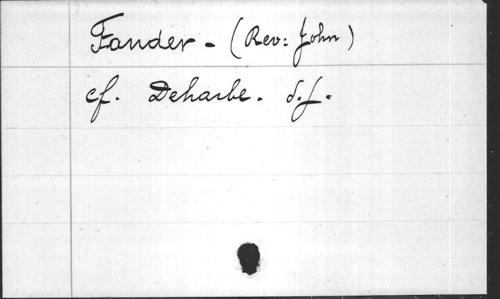 Fander - (Rev: John)
cf. Deharbe. S.J.